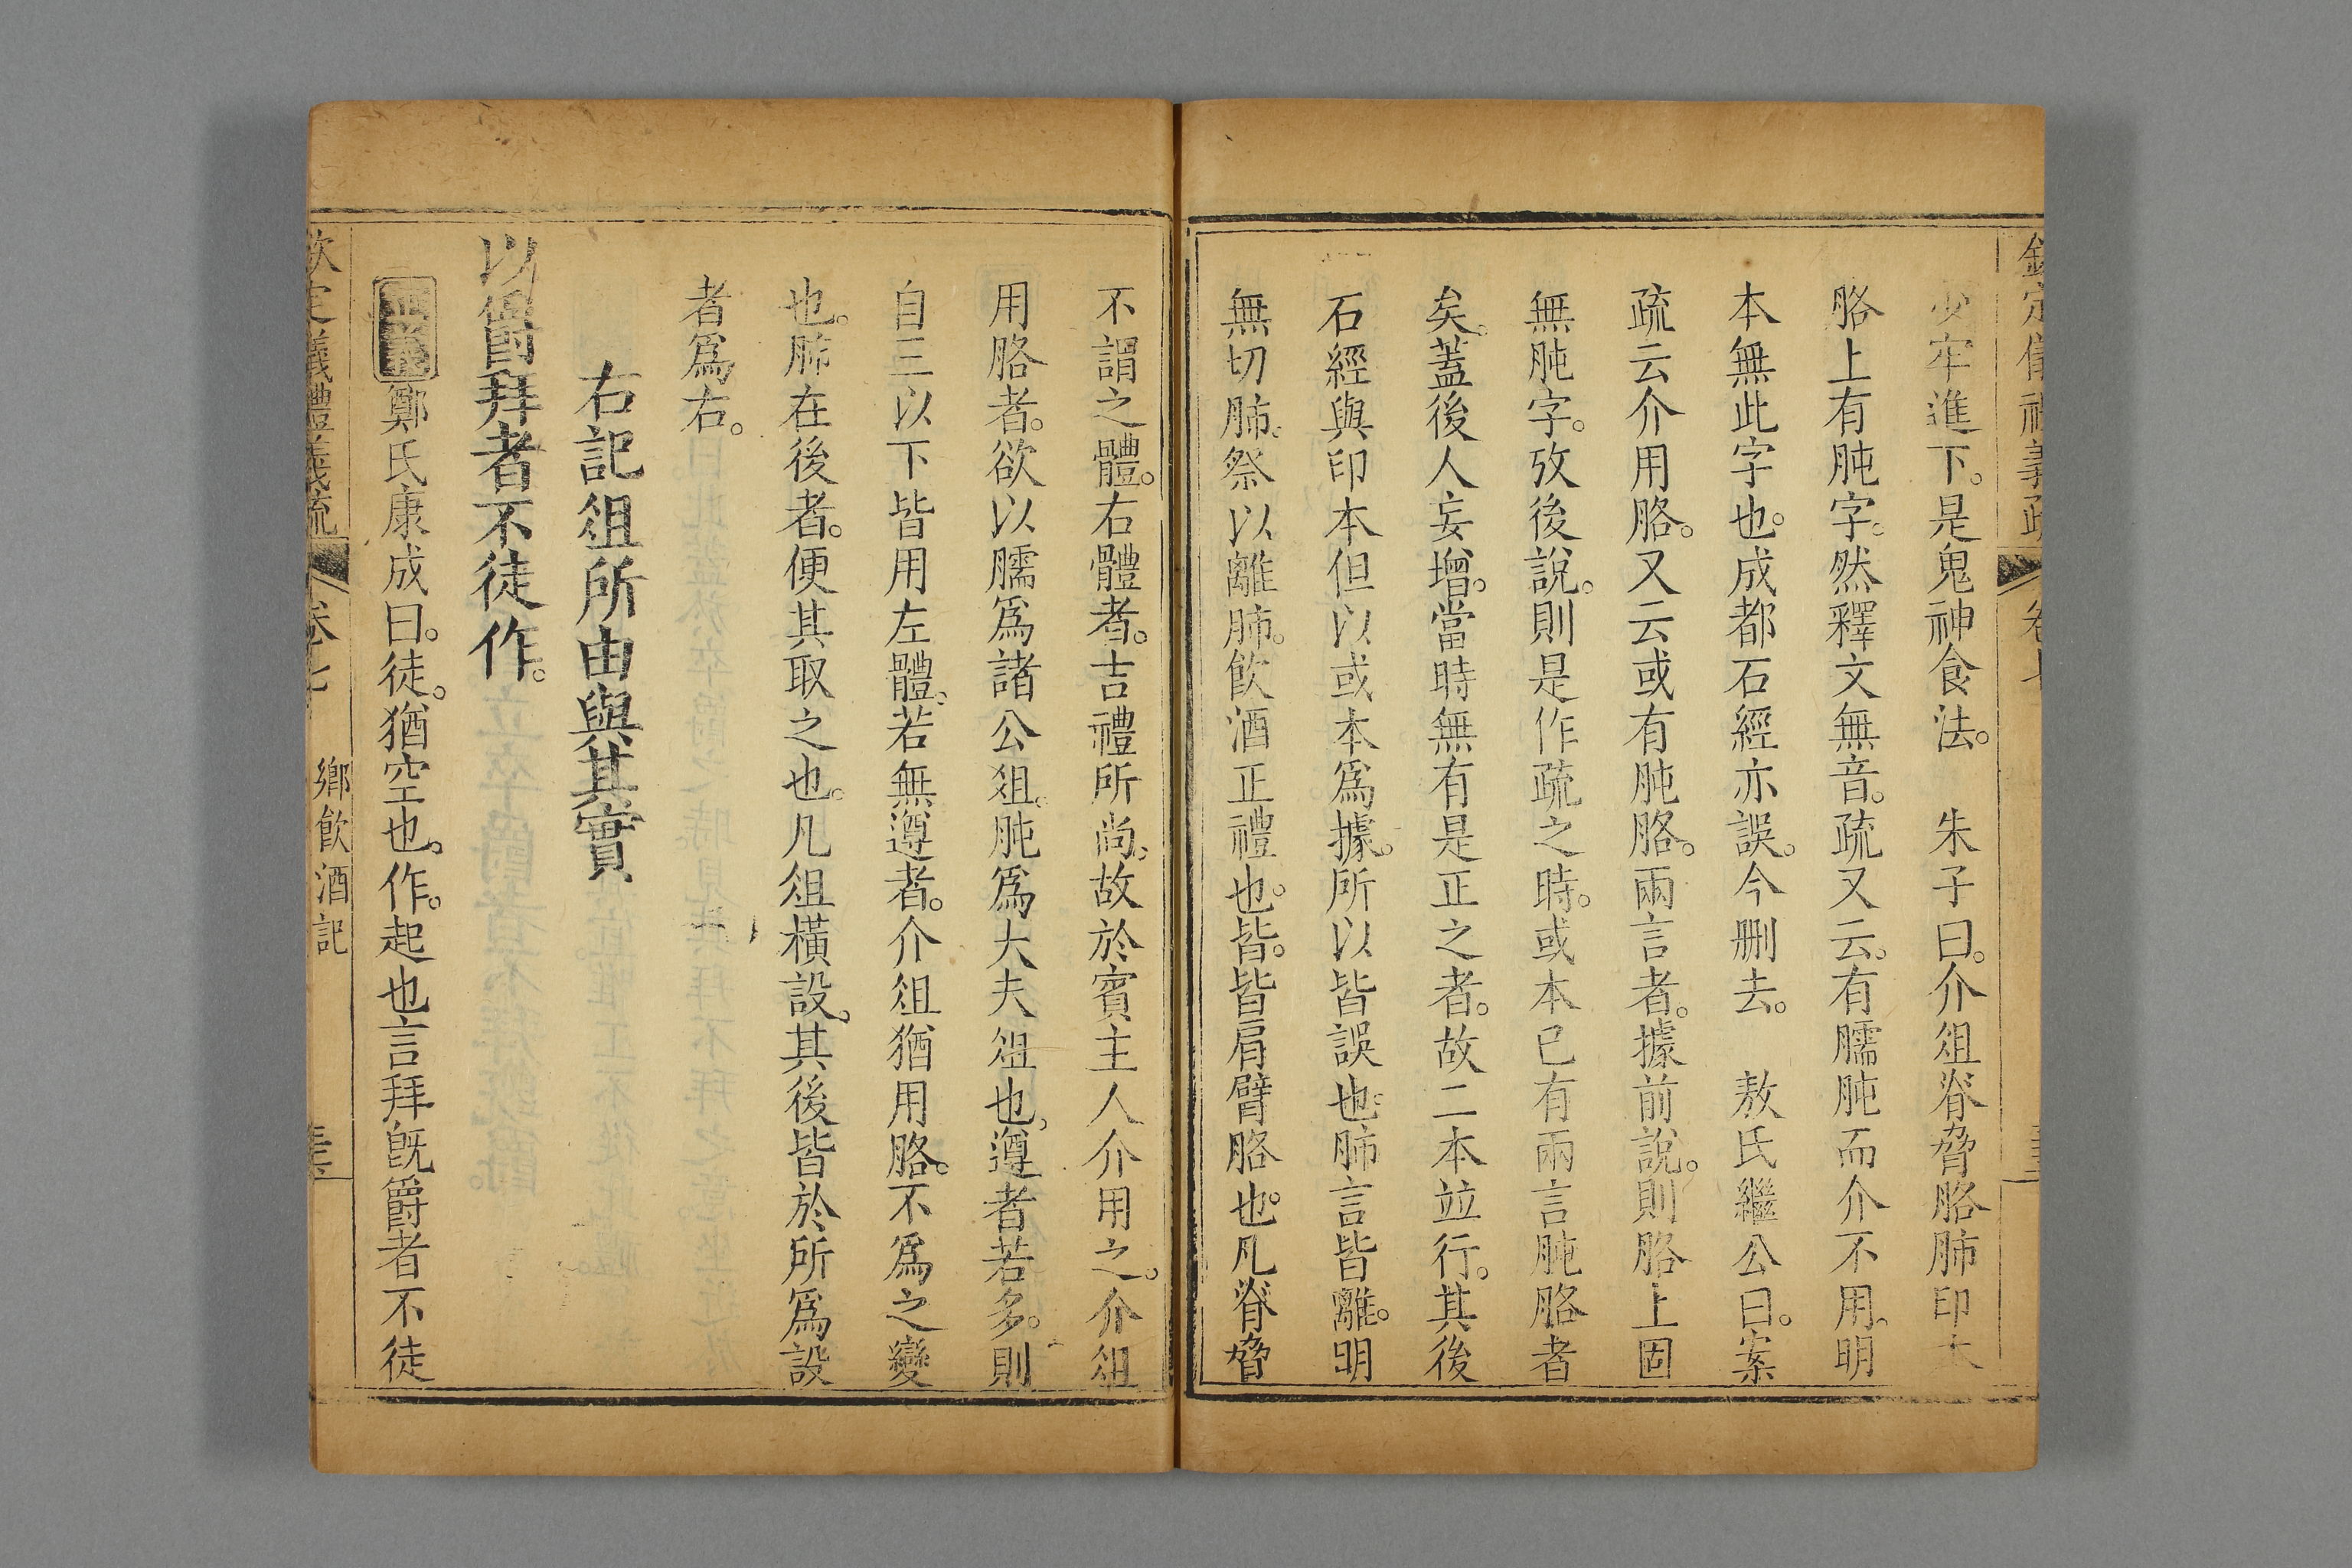 欽定儀禮義疏 卷七
少牢進下。是鬼神食法。 朱子曰。介俎脊脅胳肺印本
胳上有肫字。然釋文無音。疏又云。有臑肫而介不用。明
本無此字也。成都石經亦誤。今刪去。 敖氏繼公曰。案
疏云介用胳。又云或有肫胳。兩言者。據前說。則胳上固
無肫字。攷後說。則是作疏之時。或本已有兩言肫胳者
矣。蓋後人妄增。當時無有是正之者。故二本並行。其後
石經與印本但以或本爲據。所以皆誤也。肺言皆離。明
無切肺。祭以離肺。飲酒正禮也。皆。皆肩臂胳也。凡脊脅
不謂之體。右體者。吉禮所尚。故於賓主人介用之。介俎
用胳者。欲以臑爲諸公俎。肫爲大夫俎也。遵者若多。則
自三以下皆用左體。若無遵者。介俎猶用胳。不爲之變
也。肺在後者。便其取之也。凡俎橫設。其後皆於所爲設
者爲右。
右記俎所由與其實
以爵拜者不徒作。
鄭氏康成曰。徒。猶空也。作。起也言拜旣爵者不徒
欽定儀禮義疏 卷七 鄉飲酒記